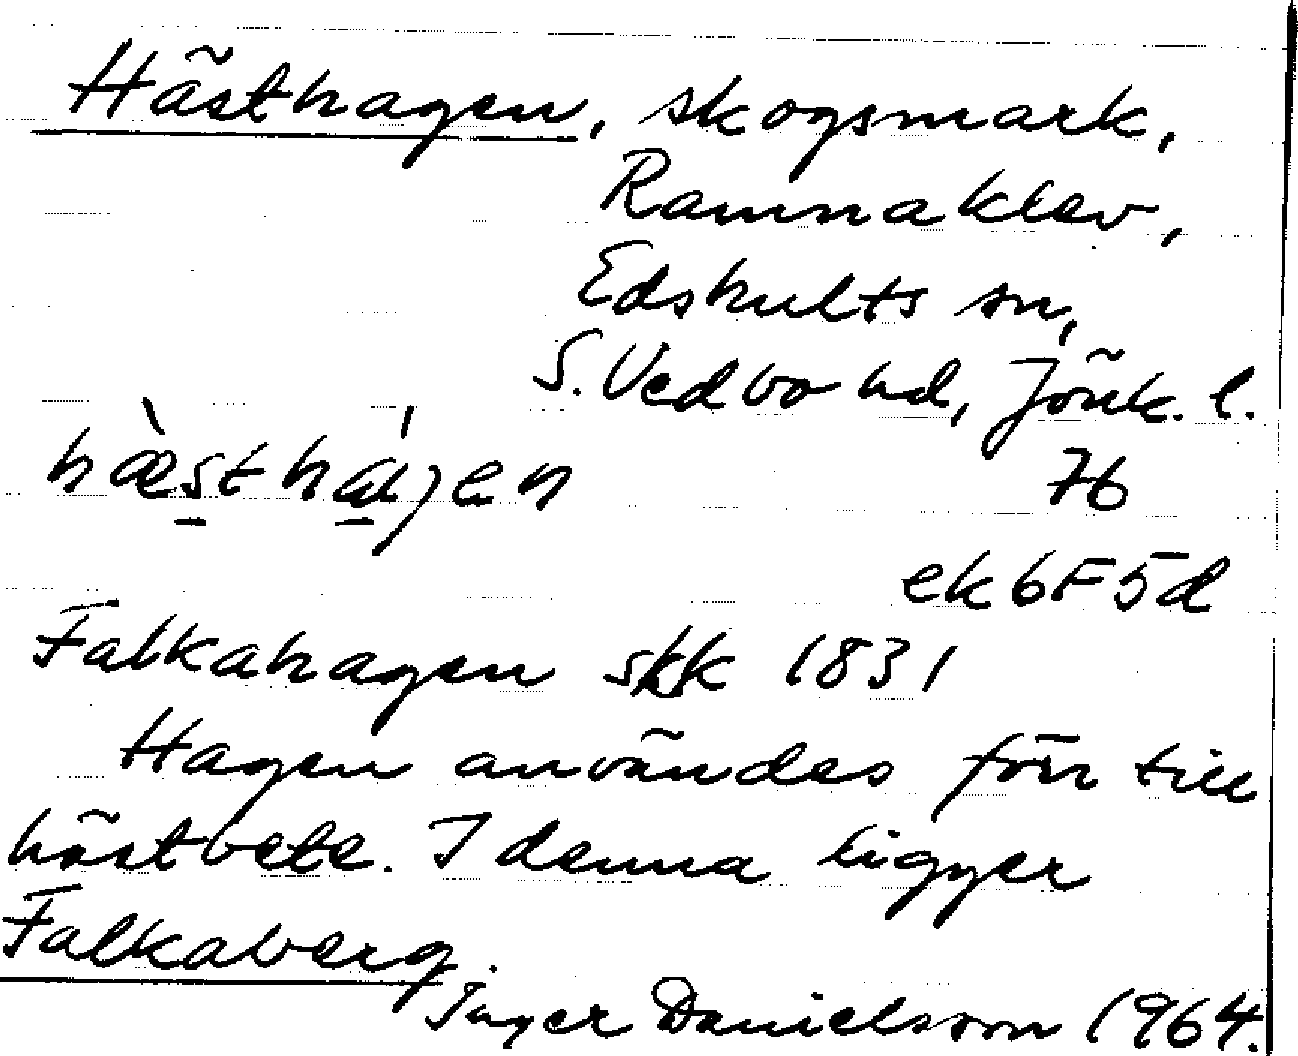 Hästhagen, skogsmark,
Ramnaklev,
Edshults sn,
S. Vedbo hd, Jönk. l.
hæ̀stháɡen 76
ek 6F 5d
Falkahagen skk 1831
Hagen användes förr till
hästbete. I denna ligger
Falkaberg.
Inger Danielsson 1964.